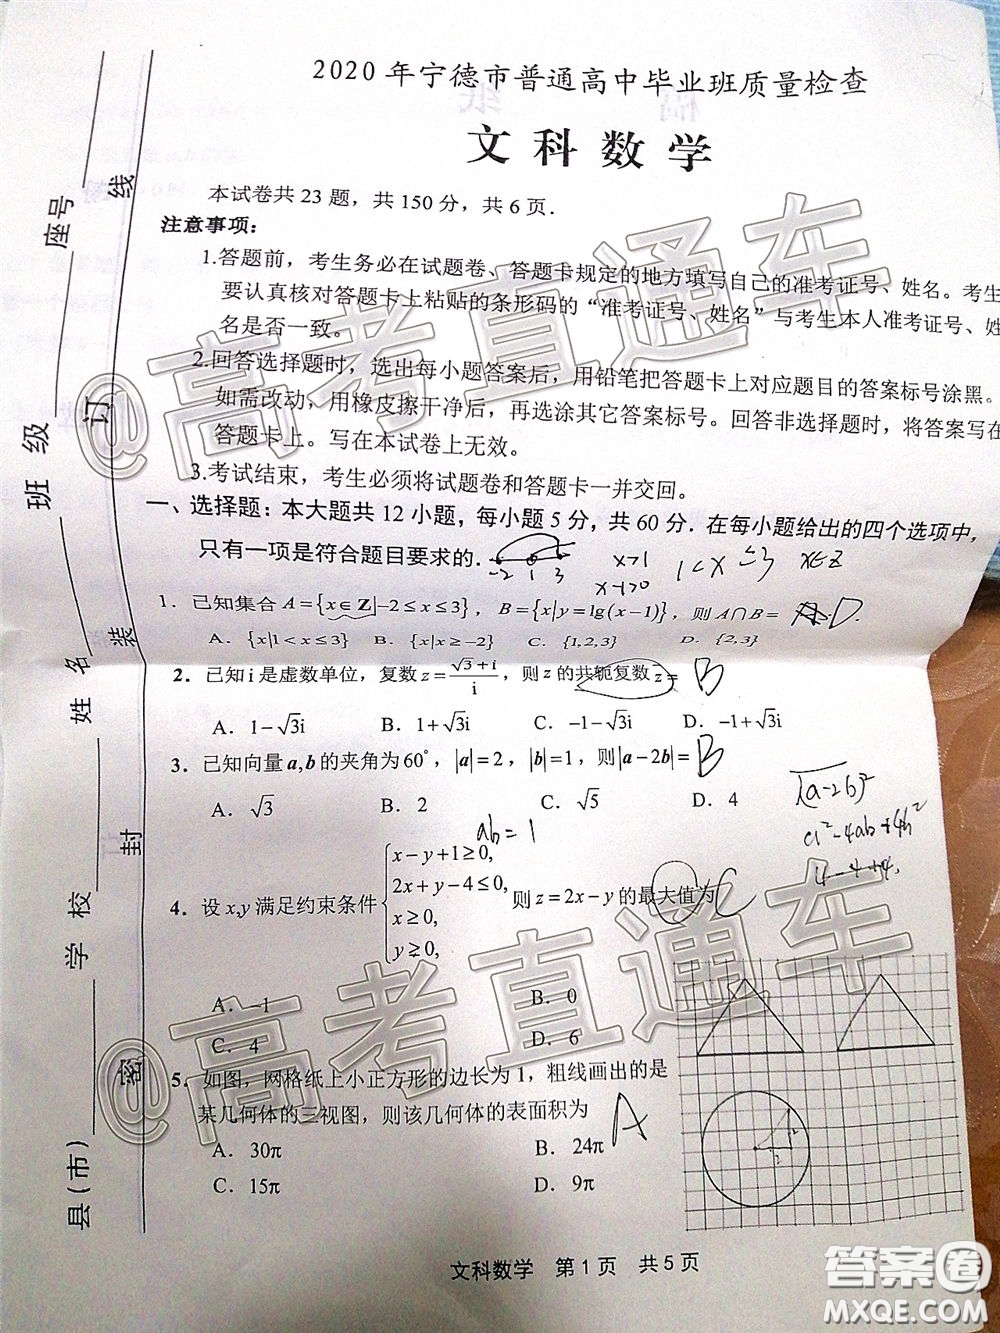 2020年宁德市普通高中毕业班质量检查
文科数学
本试卷共23题，共150分，共6页.
注意事项：
1.答题前，考生务必在试题卷、答题卡规定的地方填写自己的准考证号、姓名。考生
要认真核对答题卡上粘贴的条形码的“准考证号、姓名”与考生本人准考证号、姓
名是否一致。
2.回答选择题时，选出每小题答案后，用铅笔把答题卡上对应题目的答案标号涂黑。
如需改动，用橡皮擦干净后，再选涂其它答案标号。回答非选择题时，将答案写在
答题卡上。写在本试卷上无效。
3.考试结束，考生必须将试题卷和答题卡一并交回。
一、选择题：本大题共12小题，每小题5分，共60分．在每小题给出的四个选项中，
只有一项是符合题目要求的．
-2 1 3
x>1
x-1>0
1<x≤3 x∈Z
1．已知集合A={x∈Z|-2≤x≤3}，B={x|y=lg(x-1)}，则A∩B= D.
A．{x|1<x≤3} B．{x|x≥-2} C．{1,2,3} D．{2,3}
2．已知i是虚数单位，复数z=(√3+i)/i，则z的共轭复数z̄= B
A．1-√3i B．1+√3i C．-1-√3i D．-1+√3i
3．已知向量a,b的夹角为60°，|a|=2，|b|=1，则|a-2b|= B
A．√3 B．2 C．√5 D．4
ab=1
√(a-2b)²
a²-4ab+4b²
4-4+4
4．设x,y满足约束条件{x-y+1≥0, 2x+y-4≤0, x≥0, y≥0, 则z=2x-y的最大值为 C
A．-1 B．0
C．4 D．6
5．如图，网格纸上小正方形的边长为1，粗线画出的是
某几何体的三视图，则该几何体的表面积为 A
A．30π B．24π
C．15π D．9π
文科数学 第1页 共5页
县(市) 学校 姓名 班级 座号
密 封 装 订 线
@高考直通车
@高考直通车
答案圈
MXQE.COM